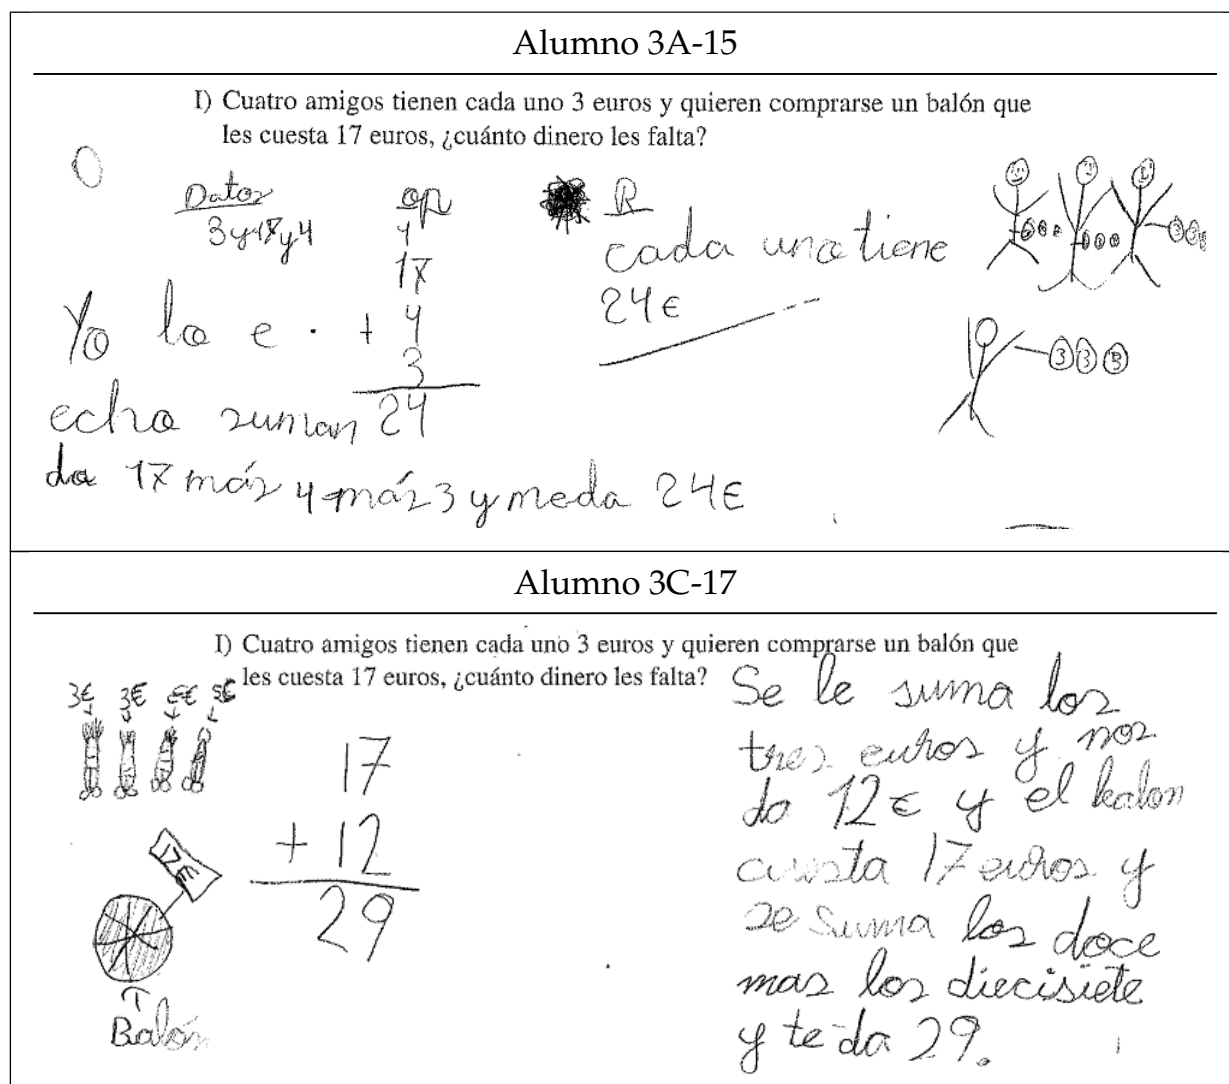 Alumno 3A-15
I) Cuatro amigos tienen cada uno 3 euros y quieren comprarse un balón que
les cuesta 17 euros, ¿cuánto dinero les falta?
Datos
3 y 17 y 4
op
1
17
+ 4
3
24
R
cada uno tiene
24€
3 3 3
Yo lo e
echo suman
do 17 más 4 más 3 y meda 24€
Alumno 3C-17
I) Cuatro amigos tienen cada uno 3 euros y quieren comprarse un balón que
les cuesta 17 euros, ¿cuánto dinero les falta?
3€ 3€
17€
Balón
17
+ 12
29
Se le suma los
tres euros y nos
da 12€ y el balon
cuesta 17 euros y
se suma los doce
mas los diecisiete
y te da 29.